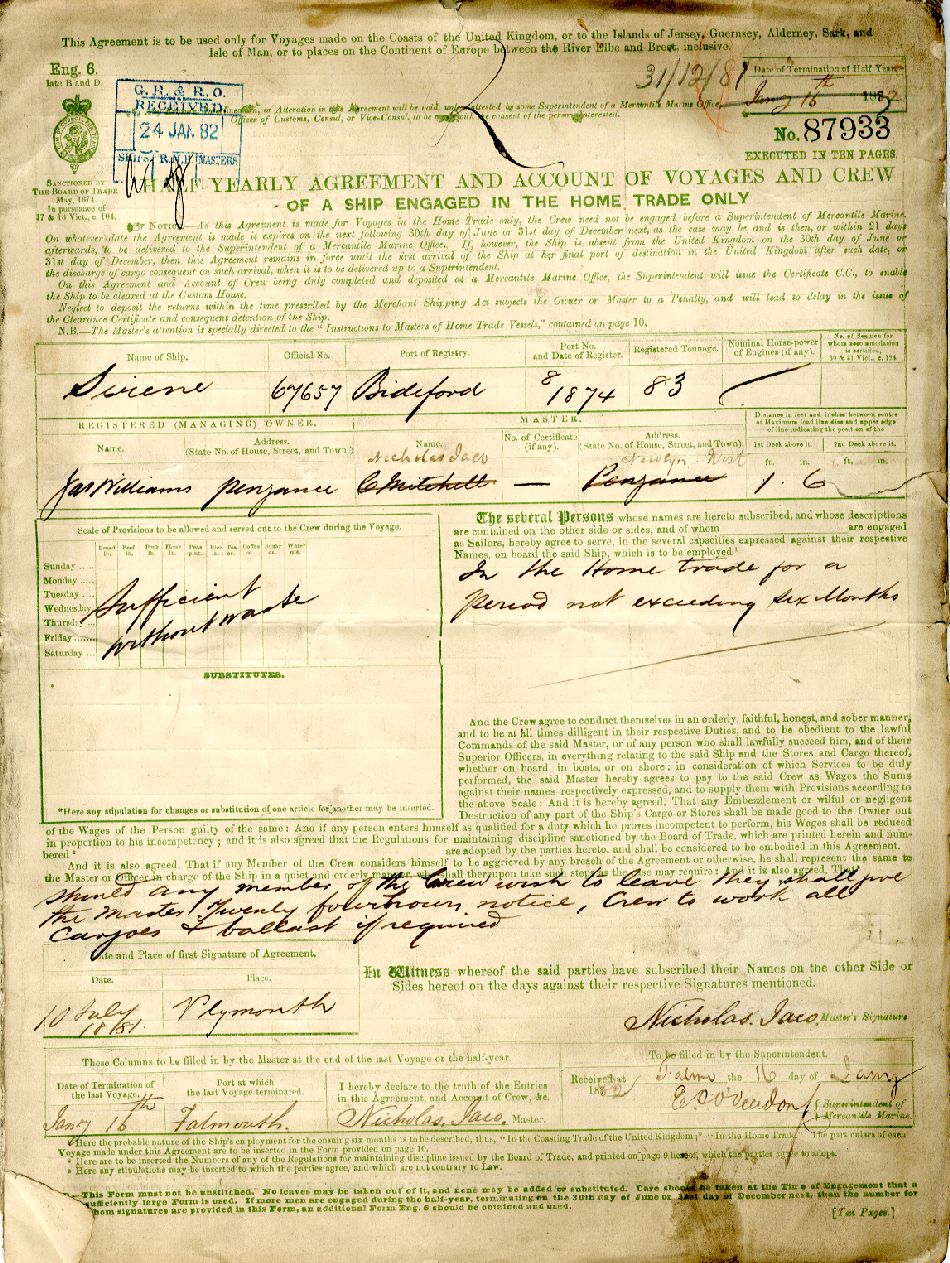 This Agreement is to be used only for Voyages made on the Coasts of the United Kingdom, or to the Islands of Jersey, Guernsey, Alderney, Sark, and
Isle of Man, or to places on the Continent of Europe between the River Elbe and Brest, inclusive.
Eng. 6.
late B and D.
31/12/81
Date of Termination of Half Year
Jany 16th 1882
G. R. & R. O.
RECEIVED
24 JAN. 82
SHIPS R.N.R MASTERS
or Alteration in this Agreement will be void unless attested by some Superintendent of a Mercantile Marine Office,
Officer of Customs, Consul, or Vice-Consul, to be made with the consent of the persons interested.
No. 87933
EXECUTED IN TEN PAGES.
SANCTIONED BY
THE BOARD OF TRADE
May, 1871.
In pursuance of
17 & 18 Vict., c. 104.
HALF YEARLY AGREEMENT AND ACCOUNT OF VOYAGES AND CREW
OF A SHIP ENGAGED IN THE HOME TRADE ONLY
NOTICE. As this Agreement is made for Voyages in the Home Trade only, the Crew need not be engaged before a Superintendent of Mercantile Marine.
On whatever date the Agreement is made it expires on the next following 30th day of June or 31st day of December next, as the case may be, and is then, or within 21 days
afterwards, to be delivered to the Superintendent of a Mercantile Marine Office. If, however, the Ship is absent from the United Kingdom on the 30th day of June or
31st day of December, then this Agreement remains in force until the first arrival of the Ship at her final port of destination in the United Kingdom after such date, or
the discharge of cargo consequent on such arrival, when it is to be delivered up to a Superintendent.
On this Agreement and Account of Crew being duly completed and deposited at a Mercantile Marine Office, the Superintendent will issue the Certificate C.C., to enable
the Ship to be cleared at the Custom House.
Neglect to deposit the returns within the time prescribed by the Merchant Shipping Act subjects the Owner or Master to a Penalty, and will lead to delay in the issue of
the Clearance Certificate and consequent detention of the Ship.
N.B.—The Master's attention is specially directed to the "Instructions to Masters of Home Trade Vessels," contained on page 10.
Name of Ship. Official No. Port of Registry. Port No. and Date of Register. Registered Tonnage. Nominal Horse-power of Engines (if any). No. of Seamen for whom accommodation is certified, 30 & 31 Vict., c. 124.
Sirene 67657 Bideford 8 1874 83
REGISTERED (MANAGING) OWNER. MASTER. Distance in feet and inches between centre of Maximum load line disc and upper edge of line indicating the position of the
Name. Address. (State No. of House, Street, and Town.) Name. No. of Certificate (if any). Address. (State No. of House, Street, and Town). 1st Deck above it. 2nd Deck above it.
Nicholas Jaco Newlyn West ft. in. ft. in.
Jas Williams Penzance C Mitchell — Penzance 1. 6
Scale of Provisions to be allowed and served out to the Crew during the Voyage.
Bread lb. Beef lb. Pork lb. Flour lb. Peas pint. Rice lb. Tea oz. Coffee oz. Sugar oz. Water qrt.
Sunday
Monday
Tuesday
Wednesday
Thursday
Friday
Saturday
Sufficient
without waste
SUBSTITUTES.
*Here any stipulation for changes or substitution of one article for another may be inserted.
The several Persons whose names are hereto subscribed, and whose descriptions
are contained on the other side or sides, and of whom are engaged
as Sailors, hereby agree to serve, in the several capacities expressed against their respective
Names, on board the said Ship, which is to be employed¹
In the Home trade for a
Period not exceeding six Months
And the Crew agree to conduct themselves in an orderly, faithful, honest, and sober manner,
and to be at all times dilligent in their respective Duties, and to be obedient to the lawful
Commands of the said Master, or of any person who shall lawfully succeed him, and of their
Superior Officers, in everything relating to the said Ship and the Stores and Cargo thereof,
whether on board, in boats, or on shore: in consideration of which Services to be duly
performed, the said Master hereby agrees to pay to the said Crew as Wages the Sums
against their names respectively expressed, and to supply them with Provisions according to
the above Scale: And it is hereby agreed, That any Embezzlement or wilful or negligent
Destruction of any part of the Ship's Cargo or Stores shall be made good to the Owner out
of the Wages of the Person guilty of the same: And if any person enters himself as qualified for a duty which he proves incompetent to perform, his Wages shall be reduced
in proportion to his incompetency; and it is also agreed that the Regulations for maintaining discipline sanctioned by the Board of Trade, which are printed herein and num-
bered are adopted by the parties hereto, and shall be considered to be embodied in this Agreement.
And it is also agreed, That if any Member of the Crew considers himself to be aggrieved by any breach of the Agreement or otherwise, he shall represent the same to
the Master or Officer in charge of the Ship in a quiet and orderly manner, who shall thereupon take such steps as the case may require: And it is also agreed, That
Should any member of the Crew wish to leave they shall give
the Master Twenty four hours notice, Crew to work all
Cargoes & ballast if required
Date and Place of first Signature of Agreement.
Date. Place.
10 July 1881. Plymouth
In Witness whereof the said parties have subscribed their Names on the other Side or
Sides hereof on the days against their respective Signatures mentioned.
Nicholas Jaco, Master's Signature
These Columns to be filled in by the Master at the end of the last Voyage or the half-year.
To be filled in by the Superintendent.
Date of Termination of the last Voyage. Port at which the last Voyage terminated.
I hereby declare to the truth of the Entries
in this Agreement, and Account of Crew, &c.
Jany 16th Falmouth. Nicholas, Jaco, Master.
Received at Falmo the 16 day of Jany
1882
Superintendent of
Mercantile Marine.
Here the probable nature of the Ship's employment for the ensuing six months is to be described, thus, "In the Coasting Trade of the United Kingdom," "In the Home Trade." The particulars of each
Voyage made under this Agreement are to be inserted in the Form provided on page 10.
Here are to be inserted the Numbers of any of the Regulations for maintaining discipline issued by the Board of Trade, and printed on page 9 hereof, which the parties agree to adopt.
Here any stipulations may be inserted to which the parties agree, and which are not contrary to Law.
This Form must not be unstitched. No leaves may be taken out of it, and none may be added or substituted. Care should be taken at the Time of Engagement that a
sufficiently large Form is used. If more men are engaged during the half-year, terminating on the 30th day of June or 31st day of December next, than the number for
whom signatures are provided in this Form, an additional Form Eng. 6 should be obtained and used.
[Ten Pages.]